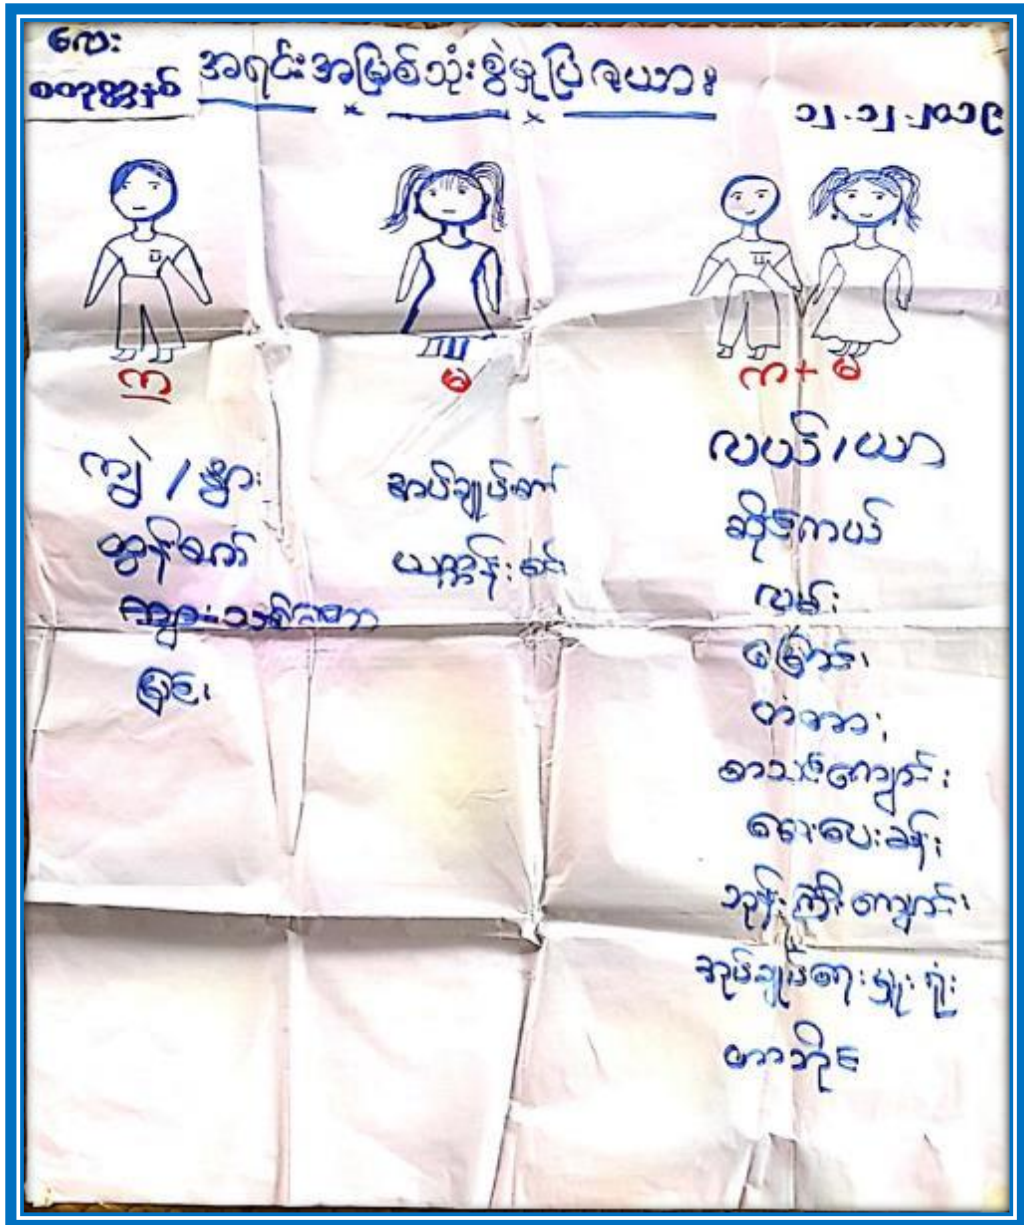 လေး
အရင်းအမြစ်သုံးစွဲမှုပြဇယား
၁၂.၁၂.၂၀၁၉
ကျ
မ
ကျ + မ
ကျွဲ / နွား
ထွန်စက်
မြင်း
အပ်ချုပ်စက်
ယက္ကန်းစင်
လယ် / ယာ
ဆိုင်ကယ်
လမ်း
မြောင်း
တံတား
စာသင်ကျောင်း
ဆေးပေးခန်း
ဘုန်းကြီးကျောင်း
အုပ်ချုပ်ရေးမှူးရုံး
တာဘိုင်